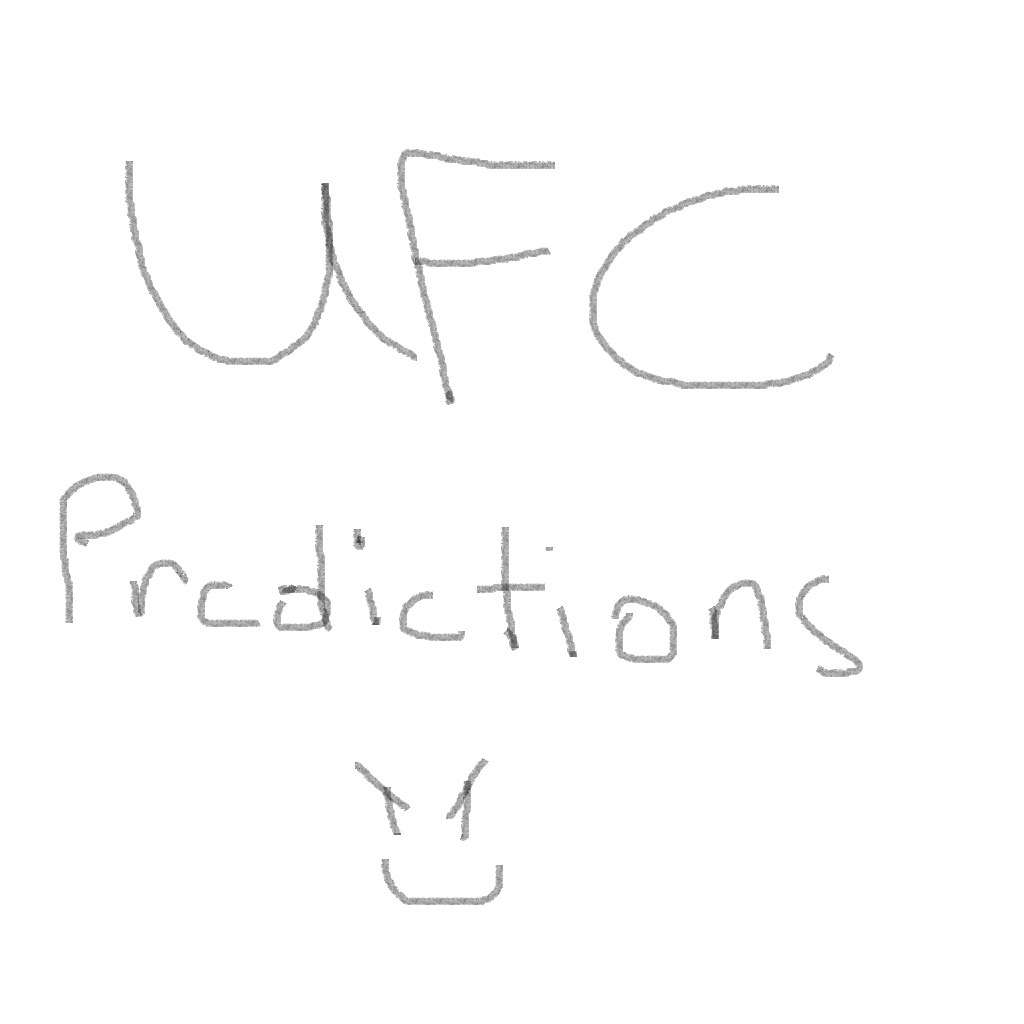 UFC
Predictions